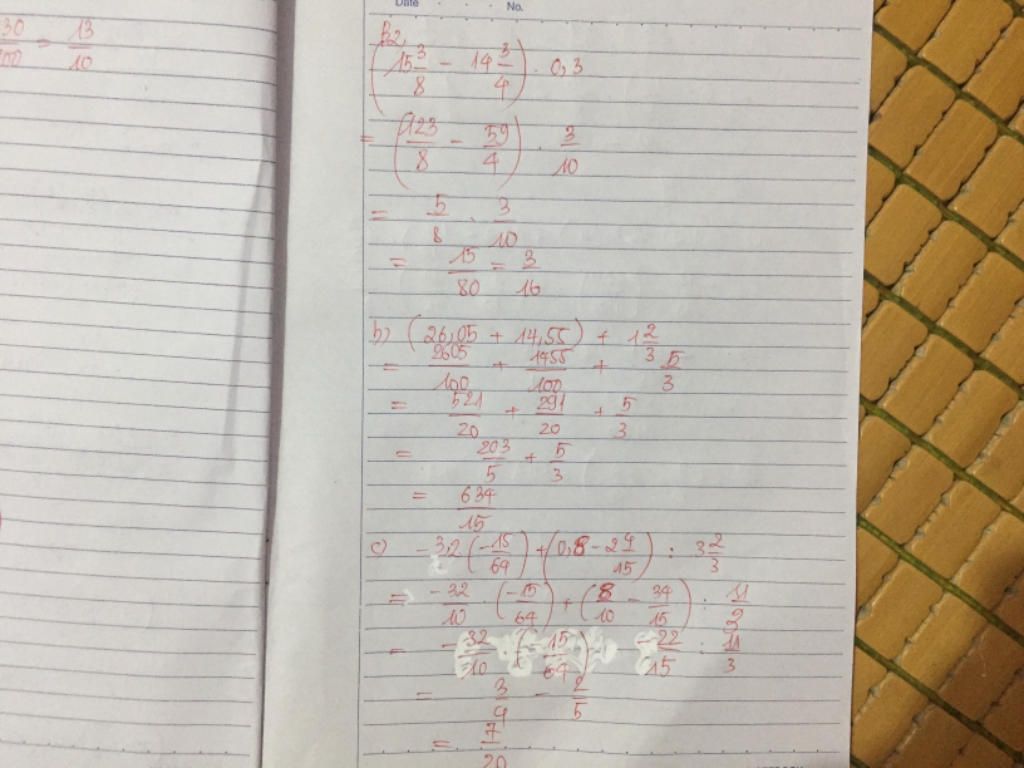 30/100 = 13/10
Date . . No.
B2,
(15 3/8 - 14 3/4) . 0,3
= (123/8 - 59/4) . 3/10
= 5/8 . 3/10
= 15/80 = 3/16
b) (26,05 + 14,55) + 1 2/3
= 2605/100 + 1455/100 + 5/3
= 521/20 + 291/20 + 5/3
= 203/5 + 5/3
= 634/15
c) -3,2 (-15/64) + (0,8 - 2 4/15) : 3 2/3
= -32/10 . (-15/64) + (8/10 - 34/15) : 11/2
= -32/10 (-15/64) -22/15 : 11/3
= 3/4 - 2/5
= 7/20